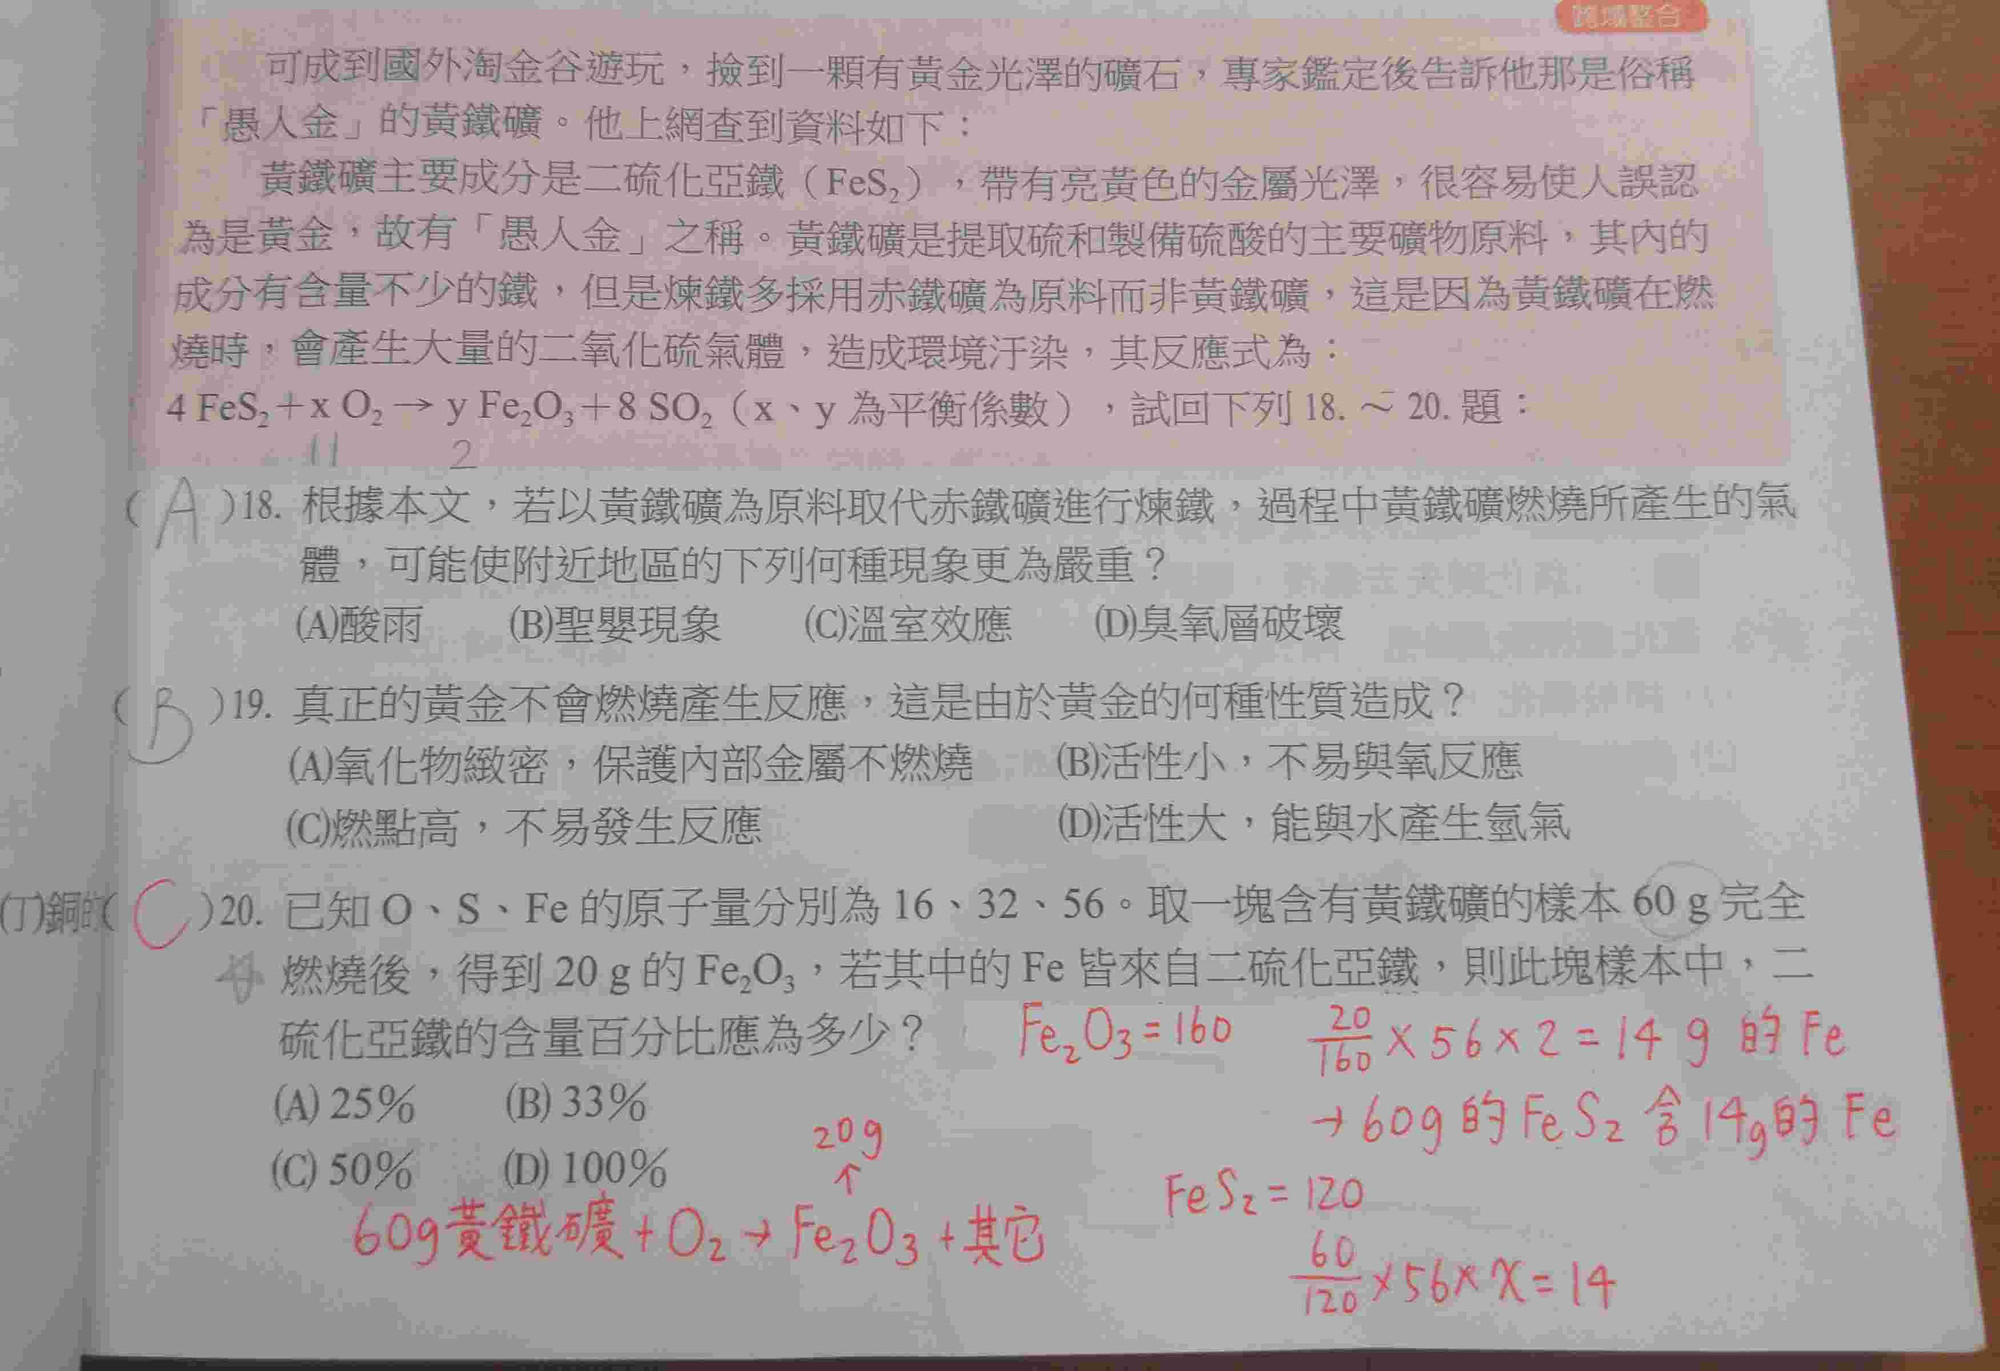 跨域整合
可成到國外淘金谷遊玩，撿到一顆有黃金光澤的礦石，專家鑑定後告訴他那是俗稱
「愚人金」的黃鐵礦。他上網查到資料如下：
黃鐵礦主要成分是二硫化亞鐵（FeS₂），帶有亮黃色的金屬光澤，很容易使人誤認
為是黃金，故有「愚人金」之稱。黃鐵礦是提取硫和製備硫酸的主要礦物原料，其內的
成分有含量不少的鐵，但是煉鐵多採用赤鐵礦為原料而非黃鐵礦，這是因為黃鐵礦在燃
燒時，會產生大量的二氧化硫氣體，造成環境汙染，其反應式為：
4 FeS₂＋x O₂→ y Fe₂O₃＋8 SO₂（x、y 為平衡係數），試回下列 18. ～ 20. 題：
11 2
( A )18. 根據本文，若以黃鐵礦為原料取代赤鐵礦進行煉鐵，過程中黃鐵礦燃燒所產生的氣
體，可能使附近地區的下列何種現象更為嚴重？
(A)酸雨 (B)聖嬰現象 (C)溫室效應 (D)臭氧層破壞
( B )19. 真正的黃金不會燃燒產生反應，這是由於黃金的何種性質造成？
(A)氧化物緻密，保護內部金屬不燃燒 (B)活性小，不易與氧反應
(C)燃點高，不易發生反應 (D)活性大，能與水產生氫氣
(丁)銅的
( C )20. 已知 O、S、Fe 的原子量分別為 16、32、56。取一塊含有黃鐵礦的樣本 60 g 完全
燃燒後，得到 20 g 的 Fe₂O₃，若其中的 Fe 皆來自二硫化亞鐵，則此塊樣本中，二
硫化亞鐵的含量百分比應為多少？
Fe₂O₃=160 20/160×56×2=14 g 的 Fe
(A) 25% (B) 33%
→60g的FeS₂含14g的Fe
(C) 50% (D) 100%
20g
↑
60g黃鐵礦+O₂→Fe₂O₃+其它
FeS₂=120
60/120×56×x=14